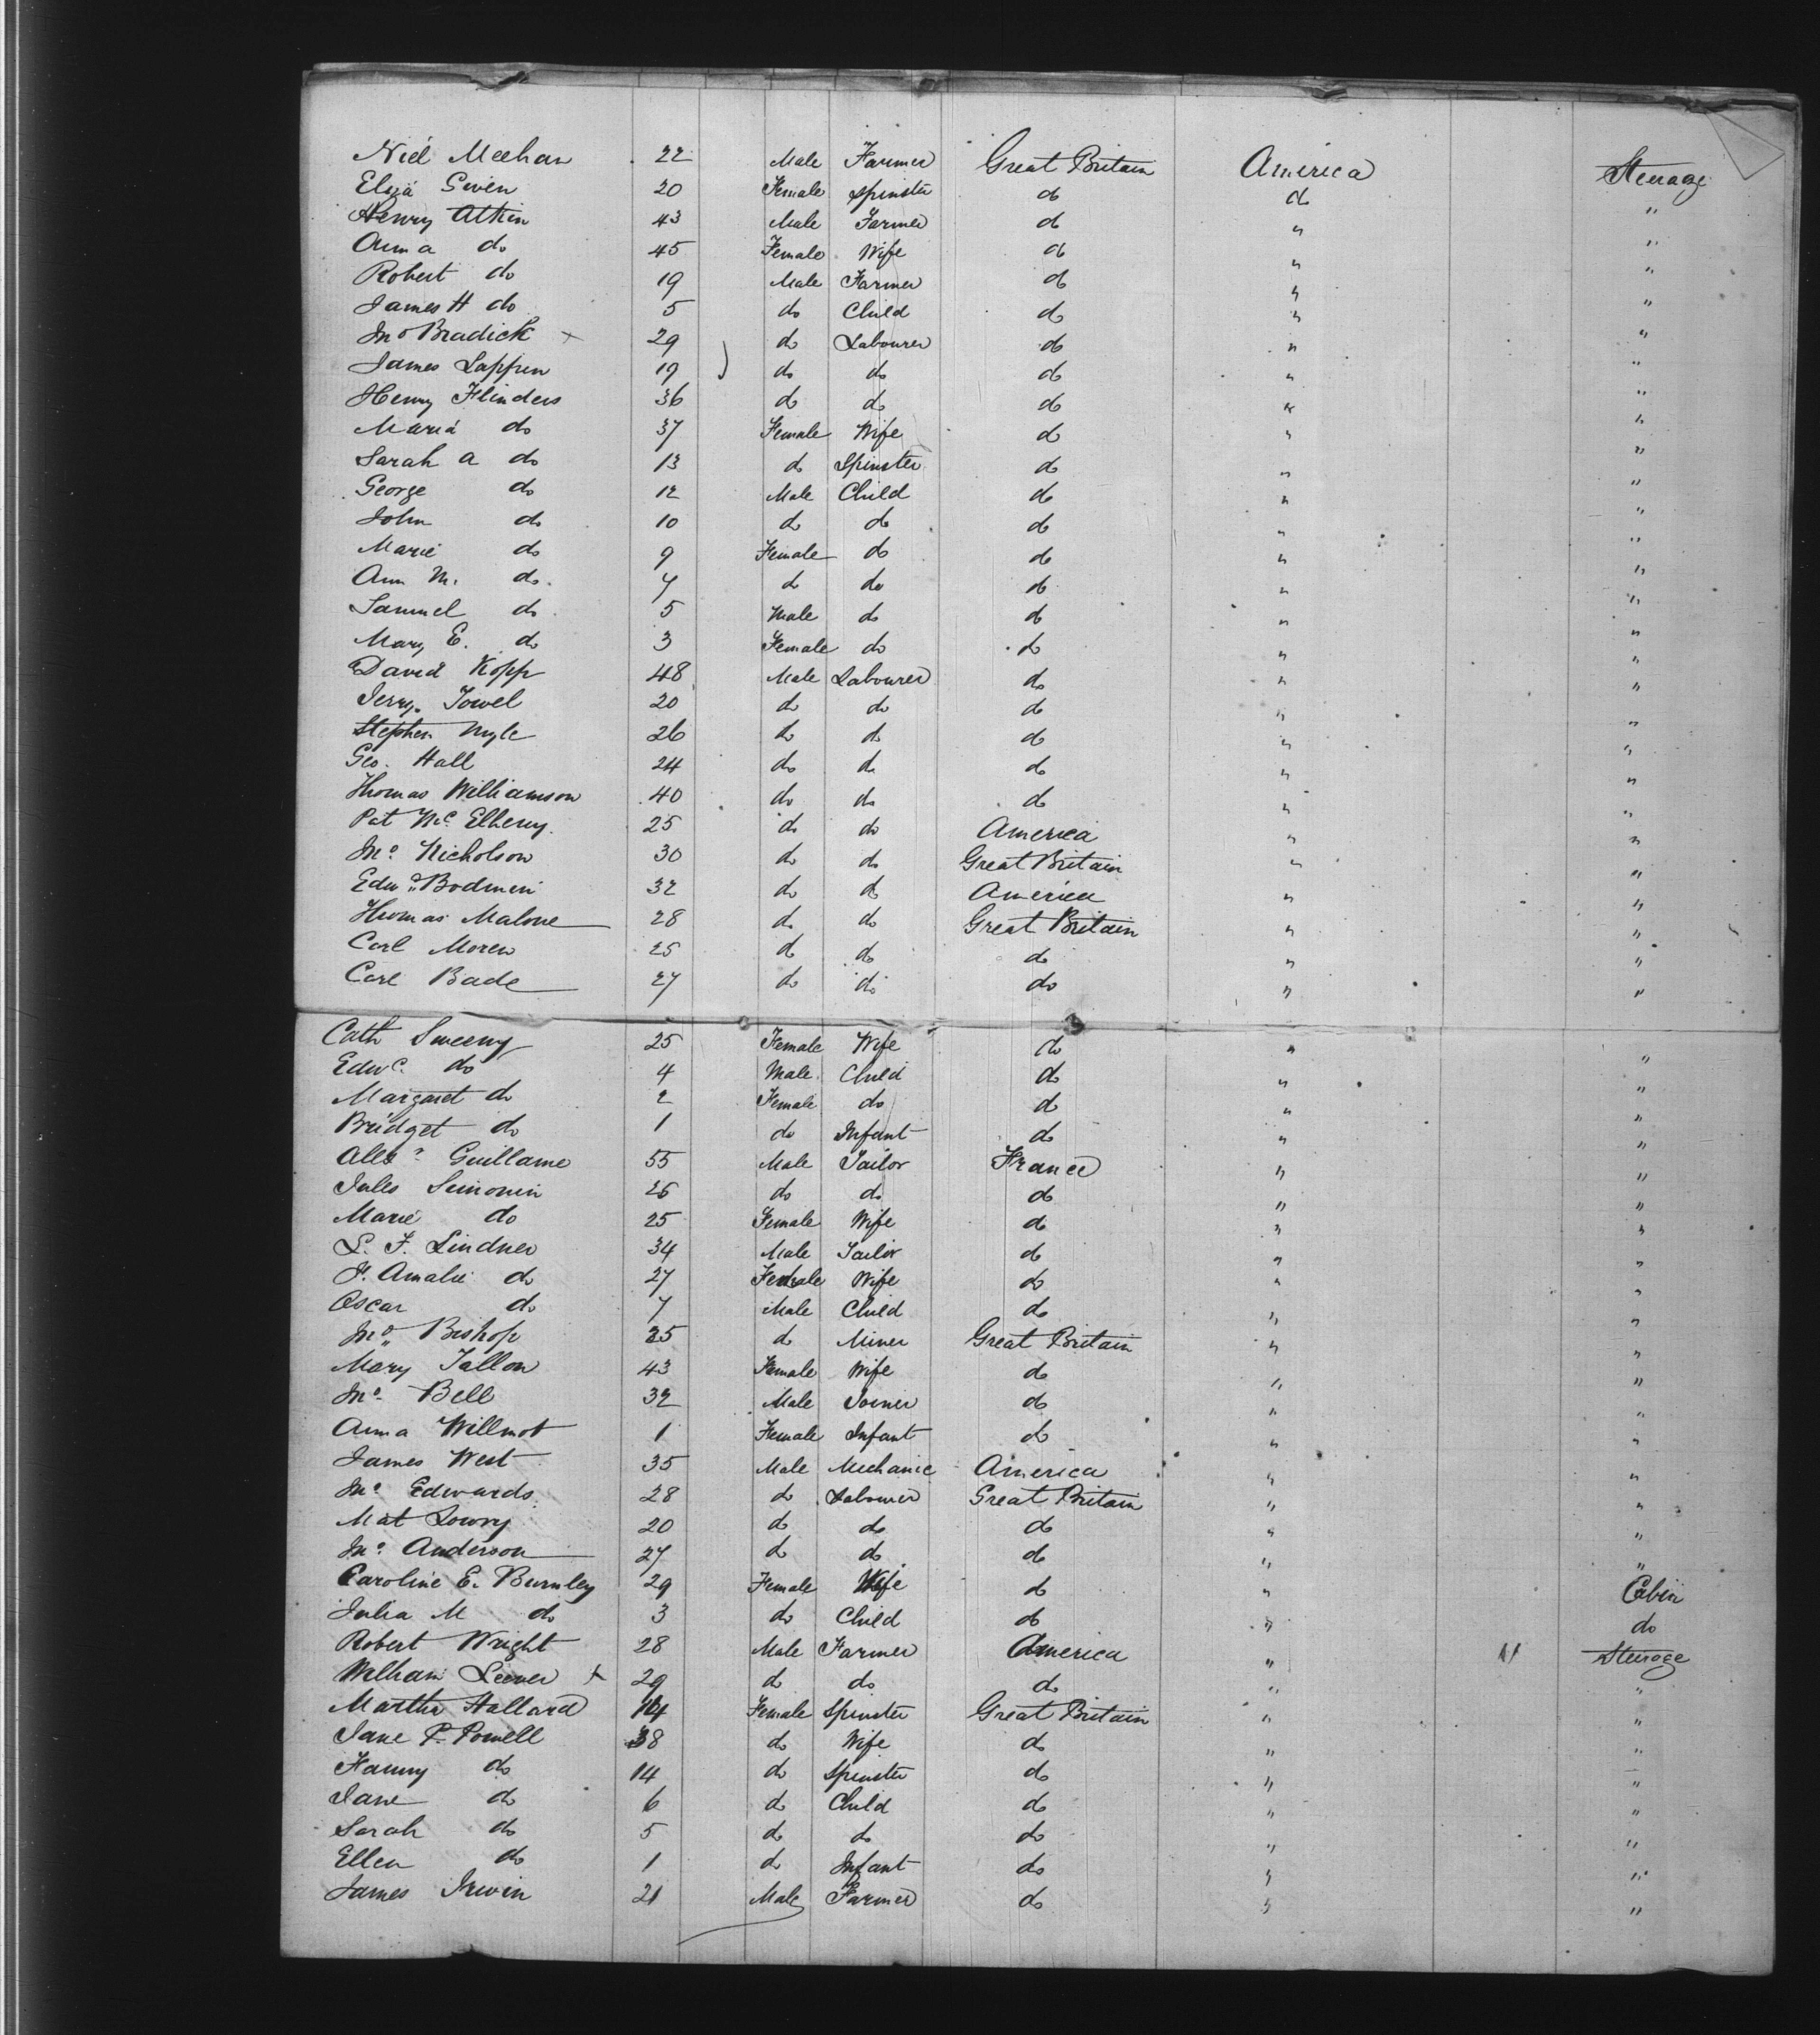 Niel Meehan 22 Male Farmer Great Britain America Steerage
Eliza Given 20 Female Spinster do do "
Henry Atkin 43 Male Farmer do " "
Anna do 45 Female Wife do " "
Robert do 19 Male Farmer do " "
James H do 5 do Child do " "
Jno Bradick x 29 do Labourer do " "
James Lappen 19 do do do " "
Henry Flinders 36 do do do " "
Maria do 37 Female Wife do " "
Sarah A do 13 do Spinster do " "
George do 12 Male Child do " "
John do 10 do do do " "
Marie do 9 Female do do " "
Ann M. do 7 do do do " "
Samuel do 5 Male do do " "
Mary E. do 3 Female do do " "
David Kopp 48 Male Labourer do " "
Jerry Towel 20 do do do " "
Stephen Nyle 26 do do do " "
Geo. Hall 24 do do do " "
Thomas Williamson 40 do do do " "
Pat Mc Elheny 25 do do America " "
Jno Nicholson 30 do do Great Britain " "
Edwd Bodmin 32 do do America " "
Thomas Malone 28 do do Great Britain " "
Carl Moren 25 do do do " "
Carl Bade 27 do do do " "
Cath Sweeny 25 Female Wife do " "
Edwd do 4 Male Child do " "
Margaret do 2 Female do do " "
Bridget do 1 do Infant do " "
Alexr Guillame 55 Male Tailor France " "
Jules Simonin 26 do do do " "
Marie do 25 Female Wife do " "
L. F. Lindner 34 Male Tailor do " "
F. Amalie do 27 Female Wife do " "
Oscar do 7 Male Child do " "
Jno Bishop 35 do Miner Great Britain " "
Mary Tallon 43 Female Wife do " "
Jno Bell 32 Male Joiner do " "
Anna Willmot 1 Female Infant do " "
James West 35 Male Mechanic America " "
Jno Edwards 28 do Labourer Great Britain " "
Mat Lowry 20 do do do " "
Jno Anderson 27 do do do " "
Caroline E. Burnley 29 Female Wife do " Cabin
Julia M do 3 do Child do " do
Robert Wright 28 Male Farmer America " 11 Steerage
William Leever x 29 do do do " "
Martha Hallard 14 Female Spinster Great Britain " "
Jane P. Powell 38 do Wife do " "
Fanny do 14 do Spinster do " "
Jane do 6 do Child do " "
Sarah do 5 do do do " "
Ellen do 1 do Infant do " "
James Irwin 21 Male Farmer do " "